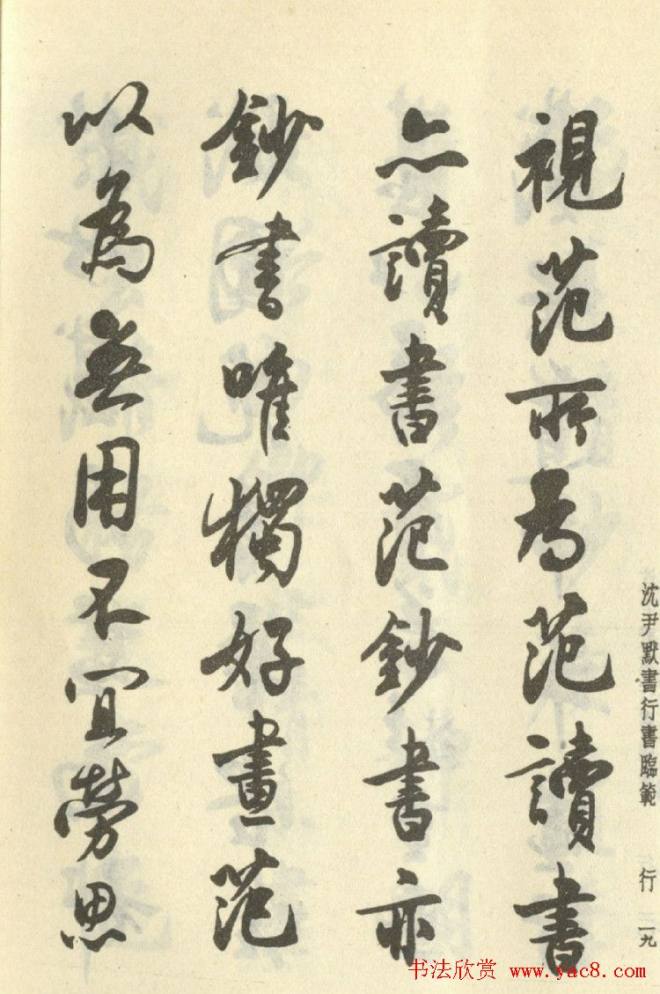 視范所為范讀書
亦讀書范鈔書亦
鈔書唯獨好畫范
以為無用不宜勞思
沈尹默書行書臨範
行
一九
书法欣赏 www.yac8.com